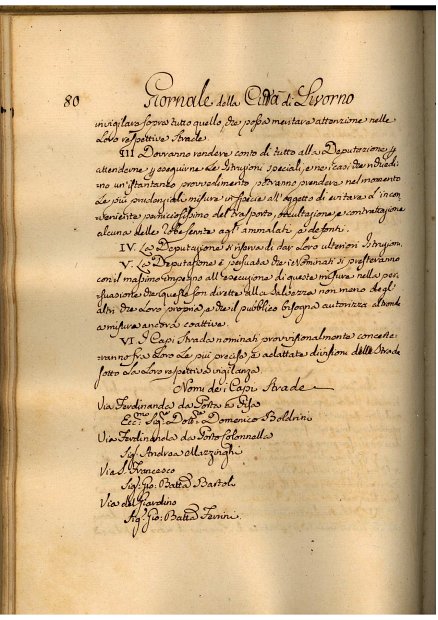 80 Giornale della Città di Livorno
invigilare sopra tutto quello, che possa meritare attenzione nelle
Loro respettive Strade.
III Dovranno rendere conto di tutto alla Deputazione, e
attenderne, e eseguirne Le Istruzioni speciali, e nei casi che richiedi-
no un istantaneo provvedimento potranno prendere nel momento
Le più prudenziali misure in specie all'oggetto di evitare l'incon-
veniente perniciosissimo del trasporto, occultazione, e contrattazione
alcuna delle robe servite agl'ammalati, o defonti.
IV. La Deputazione si riserva di dar Loro ulteriori Istruzioni.
V. La Deputazione è persuasa che i Nominati si presteranno
con il massimo impegno all'esecuzione di queste misure nella per-
suasione che queste son dirette alla salvezza non meno degl'
altri che Loro propria, e che il pubblico bisogno autorizza altronde
a misure ancora coattive.
VI I Capi Strada nominati provvisionalmente concerte-
ranno fra Loro Le più precise, e adattate divisioni delle Strade
sotto La Loro respettiva vigilanza.
Nomi dei Capi Strade
Via Ferdinanda da Porta a Pisa
Ecc.mo Sig.re Dott.re Domenico Boldrini
Via Ferdinanda da Porto Colonnella
Sig.r Andrea Mazzinghi
Via S. Francesco
Sig.r Gio: Batta Bartoli
Via del Giardino
Sig.r Gio: Batta Ferrini.